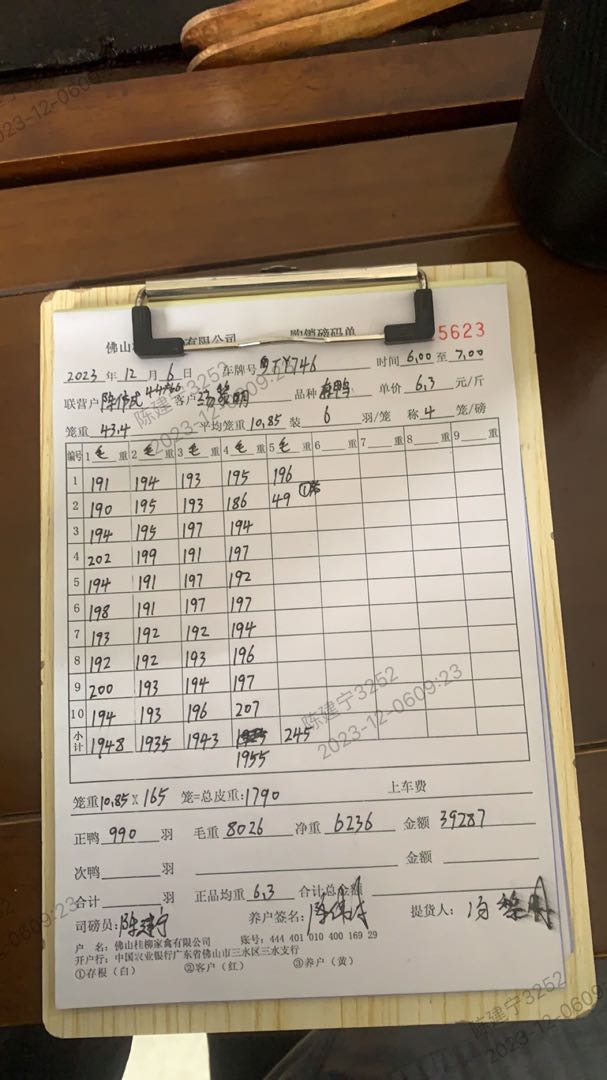 佛山 有限公司 购销磅码单 5623
2023 年 12 月 6 日 车牌号 746 时间 6,00 至 7,00
联营户 陈伟 客户 明 品种 麻鸭 单价 6,3 元/斤
笼重 43.4 平均笼重 10,85 装 6 羽/笼 称 4 笼/磅
编号 1 毛 重 2 毛 重 3 毛 重 4 毛 重 5 毛 重 6 重 7 重 8 重 9 重
1 191 194 193 195 196
2 190 195 193 186 49 ①
3 194 195 197 194
4 202 199 191 197
5 194 191 197 192
6 198 191 197 197
7 193 192 192 194
8 192 192 193 196
9 200 193 194 197
10 194 193 196 207
小计 1948 1935 1943 245
1955
笼重 10,85 × 165 笼=总皮重: 1790 上车费
正鸭 990 羽 毛重 8026 净重 6236 金额 39287
次鸭 羽 金额
合计 羽 正品均重 6,3 合计总金额
司磅员: 陈建宁 养户签名: 陈伟 提货人:
户 名: 佛山桂柳家禽有限公司 账号: 444 401 010 400 169 29
开户行: 中国农业银行广东省佛山市三水区三水支行
①存根(白) ②客户(红) ③养户(黄)
陈建宁3252
2023-12-0609:23
陈建宁3252
2023-12-0609:23
陈建宁3252